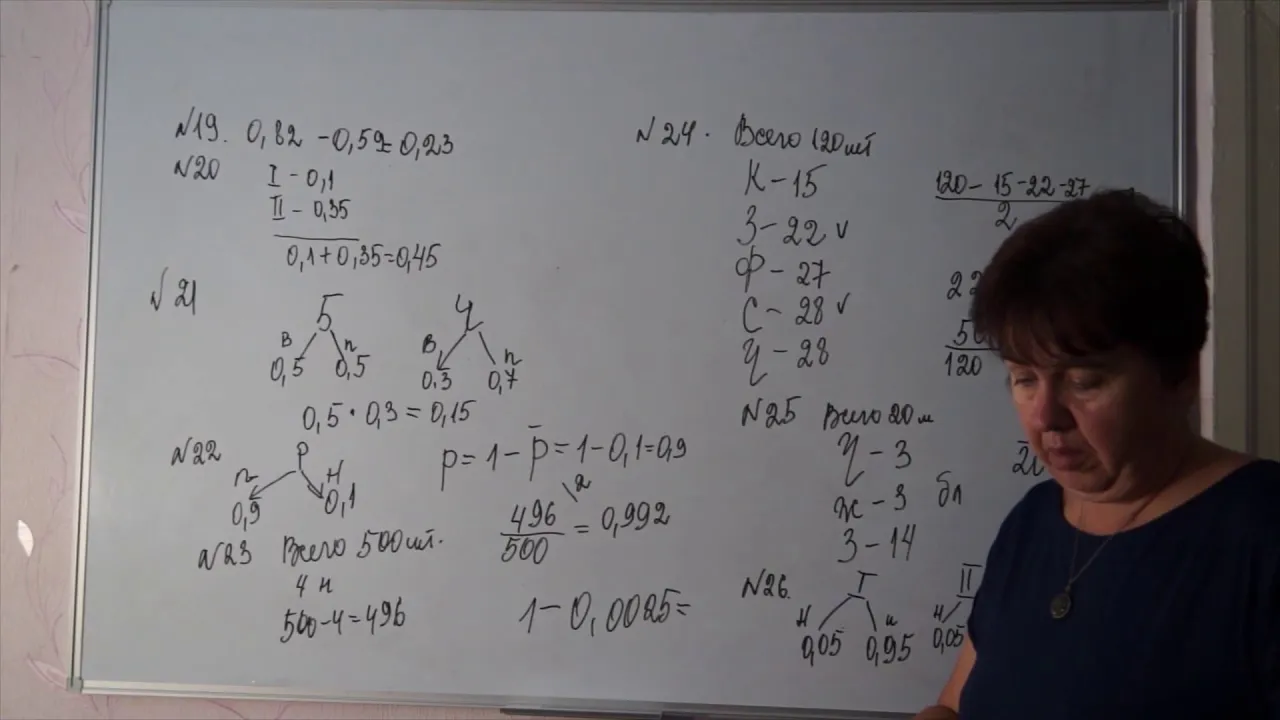 N19. 0,82 - 0,59 = 0,23
N20 I - 0,1
II - 0,35
0,1 + 0,35 = 0,45
N21
5 4
в п в п
0,5 0,5 0,3 0,7
0,5 · 0,3 = 0,15
N22 P
п н
0,9 0,1
p = 1 - p̄ = 1 - 0,1 = 0,9
N23 Всего 500 шт.
4 н
500 - 4 = 496
496
500
= 0,992
1 - 0,0025 =
N24. Всего 120 шт
К - 15
З - 22 ✓
Ф - 27
С - 28 ✓
Ч - 28
120 - 15 - 22 - 27
2
22
50
120
N25 Всего 20 м
Ч - 3
Ж - 3 бл
З - 14
N26. I II
н и н
0,05 0,95 0,05